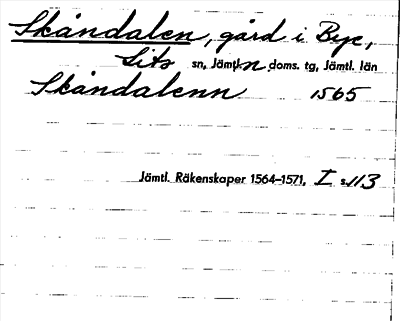 Skåndalen, gård i Bye,
Lits sn, Jämtl. n. doms. tg, Jämtl. län
Skåndalenn 1565
Jämtl. Räkenskaper 1564–1571, I s. 113